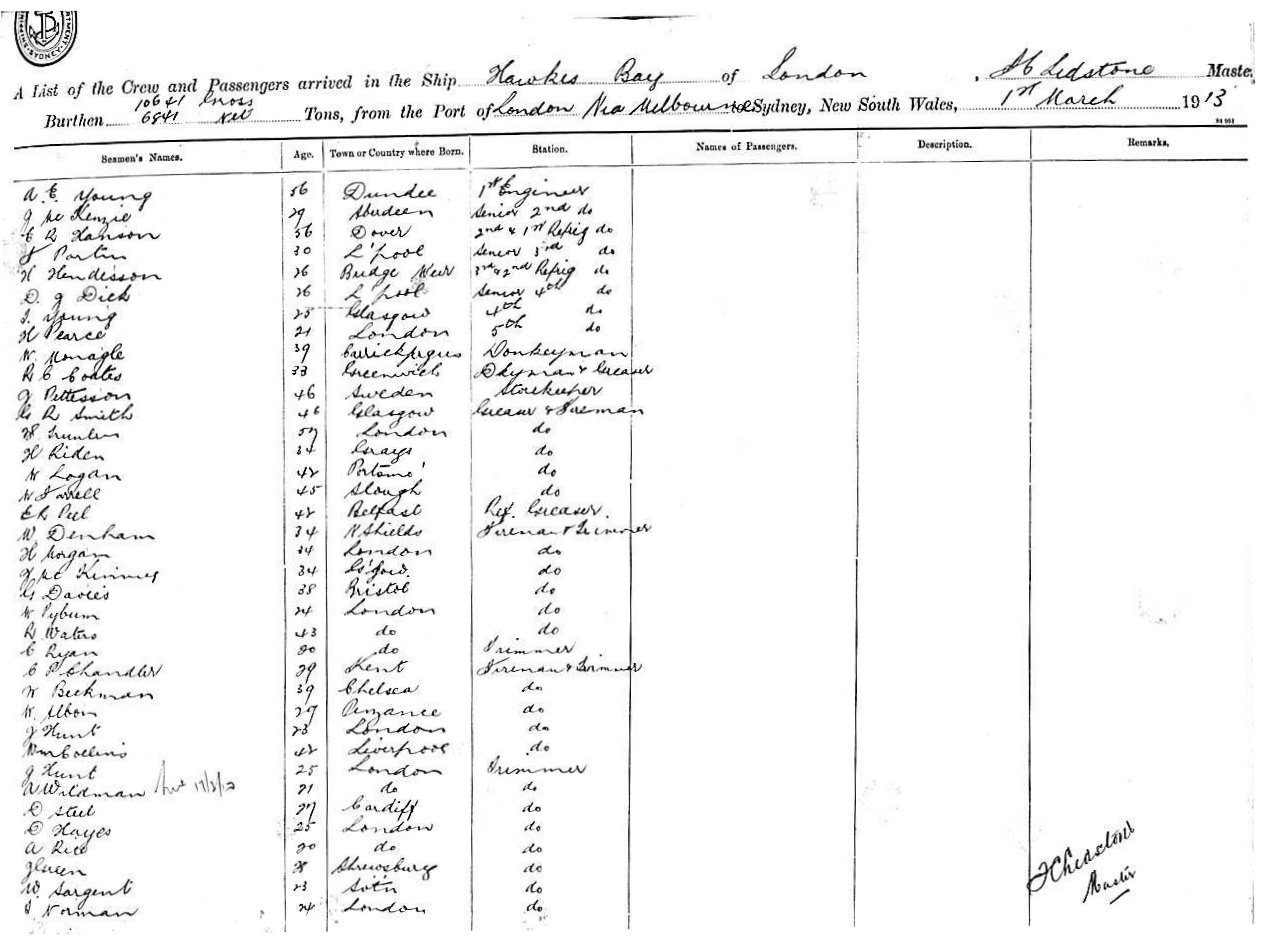 A List of the Crew and Passengers arrived in the Ship Hawkes Bay of London, Ledstone Maste
Burthen 10641 Gross 6841 Net Tons, from the Port of London Via Melbourne Sydney, New South Wales, 1st March 1913
Seamen's Names. Age. Town or Country where Born. Station. Names of Passengers. Description. Remarks.
A. E. Young 56 Dundee 1st Engineer
J Mc Kenzie 29 Aberdeen Senior 2nd do
C R Hanson 36 Dover 2nd & 1st Refrig do
J 30 L'pool Senior 3rd do
H Hendesson 26 Bridge Weir 3rd & 2nd Refrig do
D. J Dick 26 L'pool Senior 4th do
Young 25 Glasgow 4th do
H Pearce 21 London 5th do
W. Monagle 39 Carrickfergus Donkeyman
R C Coates 33 Greenwich Dkyman & Greaser
J Pettesson 46 Sweden Storekeeper
G R Smith 46 Glasgow Greaser & Fireman
57 London do
H Riden 34 Grays do
W Logan 42 Portsmo' do
W Farrell 45 Slough do
E R Peel 42 Belfast Ref. Greaser.
W Denham 34 N Shields Fireman & Trimmer
H Morgan 24 London do
Mc 34 Gs'gow. do
G Davies 38 Bristol do
W Pyburn 24 London do
R Waters 43 do do
C Ryan 20 do Trimmer
C P Chandler 29 Kent Fireman & Trimmer
W Beckman 39 Chelsea do
W. Albon 27 Penzance do
J Hunt 23 London do
Wm Collins 42 Liverpool do
J Hunt 25 London Trimmer
A Wildman 21 do do
D Steel 27 Cardiff do
D Hayes 25 London do
A Rice 20 do do
J Green 28 Shrewsbury do
W. Sargent 23 So'tn do
Norman 24 London do
Master